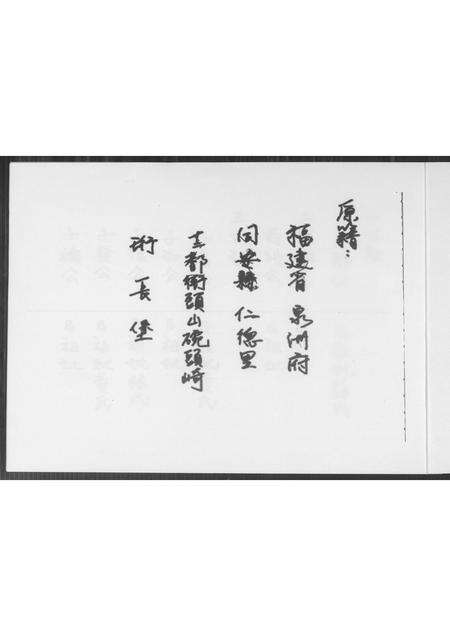 原籍：
福建省 泉州府
同安縣 仁德里
十都衙頭山碗頭崎
長堡